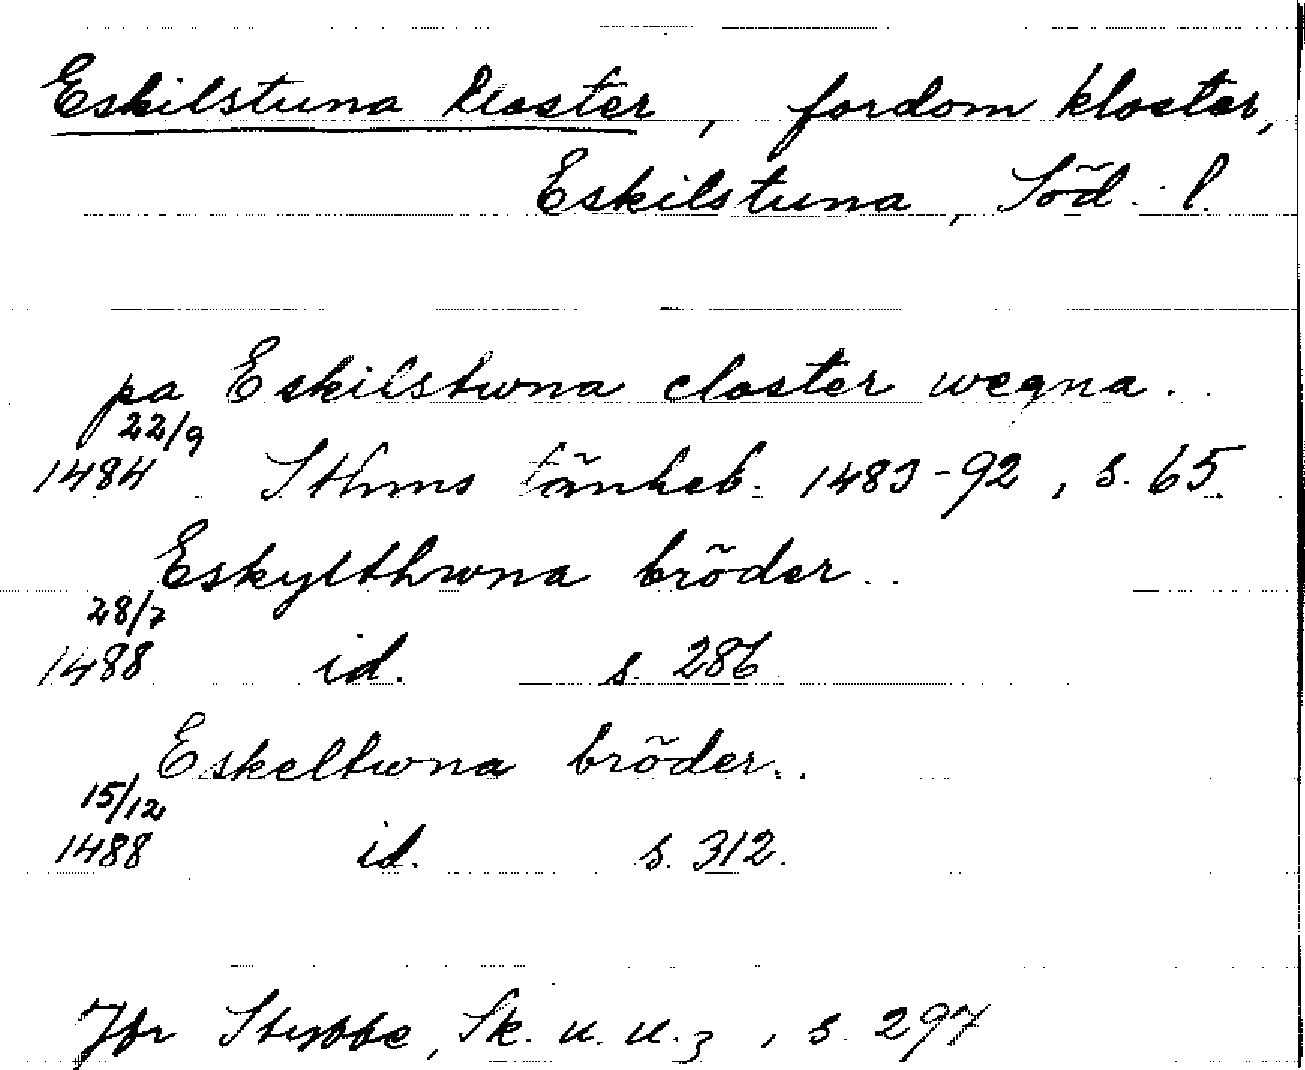 Eskilstuna kloster, fordom kloster,
Eskilstuna, Söd. l.
pa Eskilstwna closter wegna..
22/9
1484 Sthms tänkeb. 1483-92, s. 65.
Eskylthwna bröder..
28/7
1488 id. s. 286
Eskeltwna bröder..
15/12
1488 id. s. 312.
Jfr Stybbe, Sk. u. u. 3, s. 297